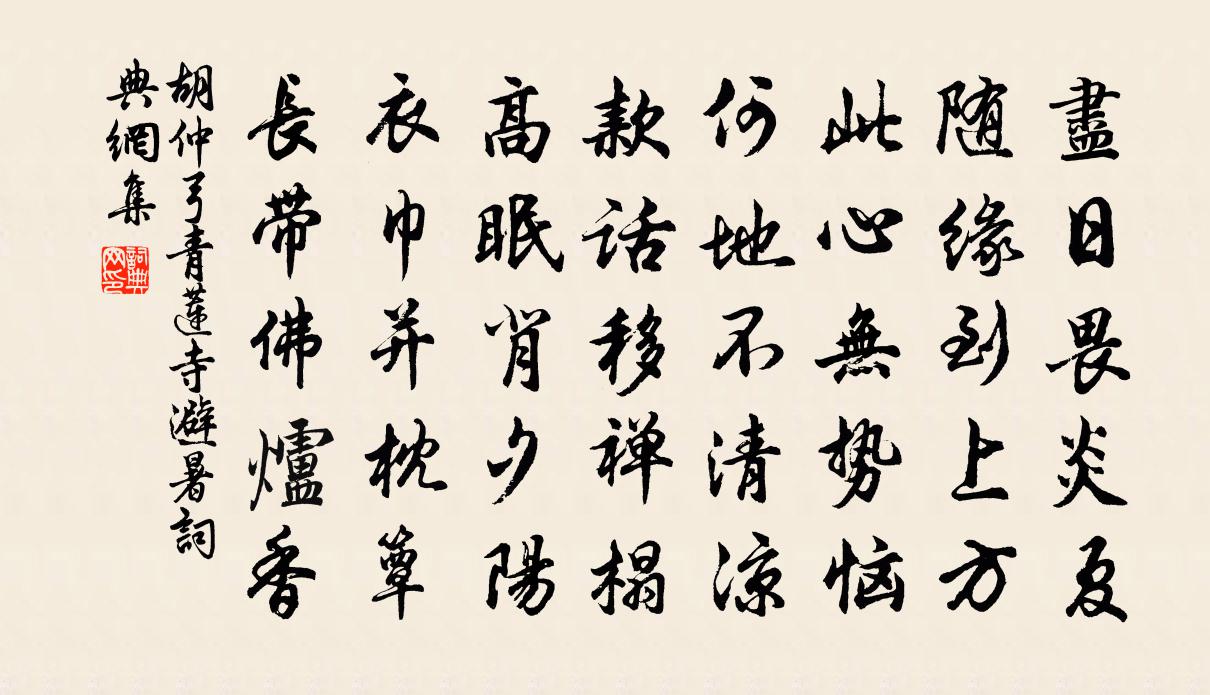 盡日畏炎夏
随緣到上方
此心無势恼
何地不清涼
款話移禅榻
高眠背夕陽
衣巾并枕簟
長帶佛爐香
胡仲弓青蓮寺避暑詞
典網集
詞典網印